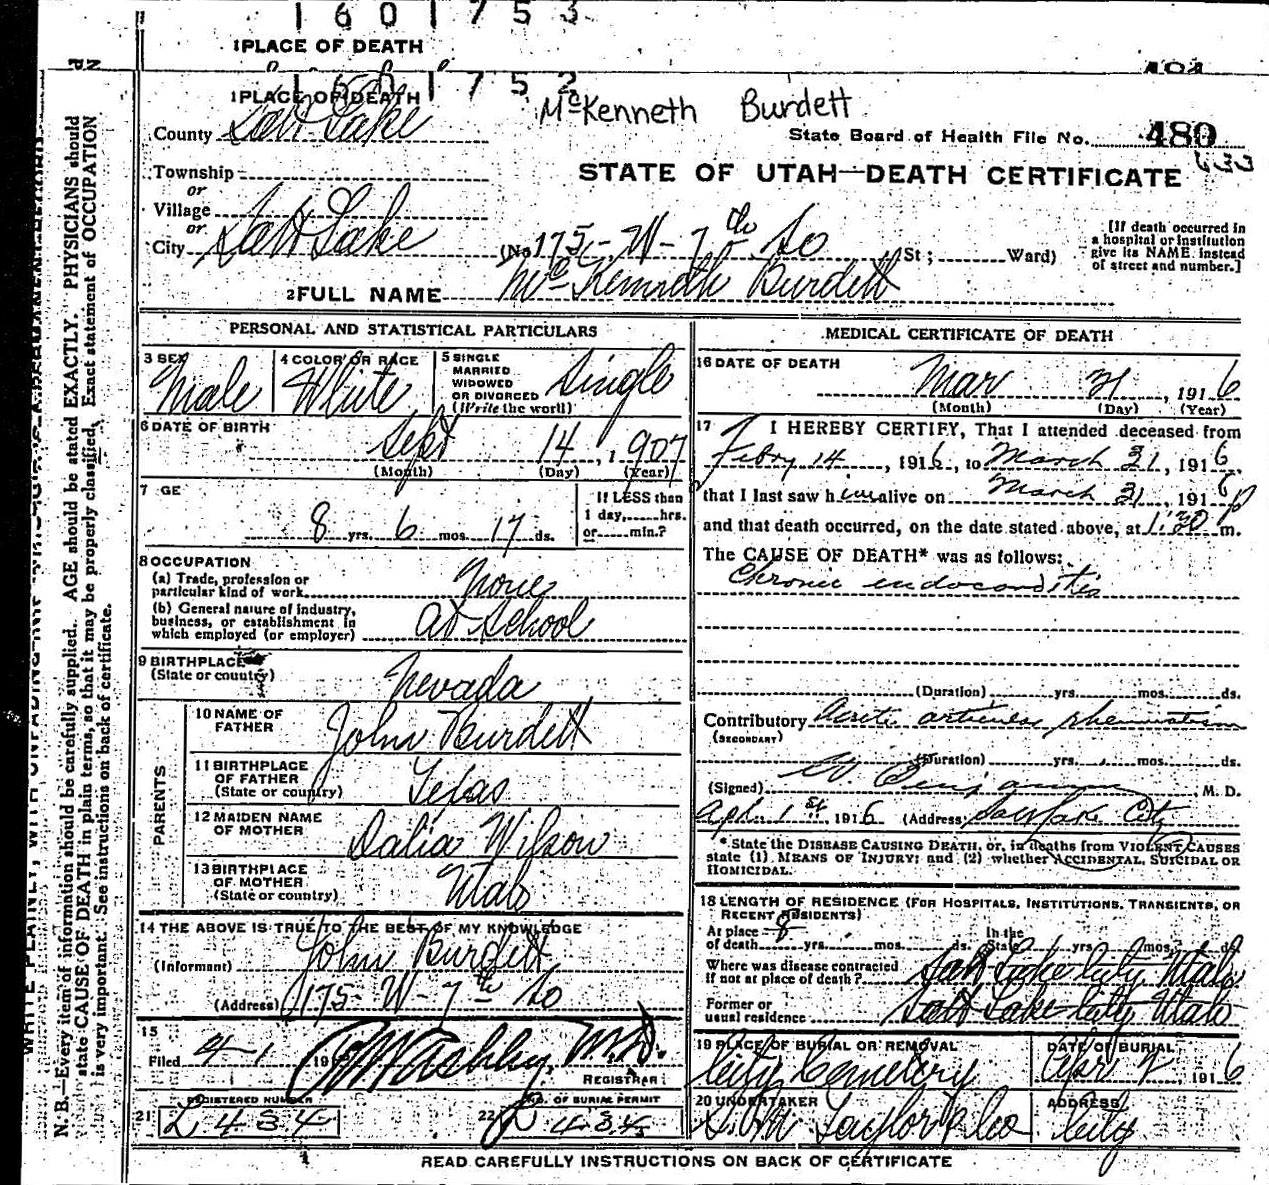 1 6 0 1 7 5 3
1 PLACE OF DEATH
1 6 0 1 7 5 2
1 PLACE OF DEATH
McKenneth Burdett
County Salt Lake
State Board of Health File No. 480
633
Township
or
Village
or
City Salt Lake
STATE OF UTAH—DEATH CERTIFICATE
(No 175 - W - 7th So St; Ward)
[If death occurred in
a hospital or institution
give its NAME instead
of street and number.]
2 FULL NAME McKenneth Burdett
PERSONAL AND STATISTICAL PARTICULARS
3 SEX Male
4 COLOR OR RACE White
5 SINGLE
MARRIED
WIDOWED
OR DIVORCED
(Write the word) Single
6 DATE OF BIRTH Sept 14, 1907
(Month) (Day) (Year)
7 GE
8 yrs. 6 mos. 17 ds.
If LESS than
1 day, hrs.
or min.?
8 OCCUPATION
(a) Trade, profession or
particular kind of work None
(b) General nature of industry,
business, or establishment in
which employed (or employer) at School
9 BIRTHPLACE
(State or country) Nevada
PARENTS
10 NAME OF
FATHER John Burdett
11 BIRTHPLACE
OF FATHER
(State or country) Texas
12 MAIDEN NAME
OF MOTHER Dalia Wilson
13 BIRTHPLACE
OF MOTHER
(State or country) Utah
14 THE ABOVE IS TRUE TO THE BEST OF MY KNOWLEDGE
(Informant) John Burdett
(Address) 175 - W - 7th So
15
Filed 4-1 191
M.D.
REGISTRAR
21 REGISTERED NUMBER
L 434
22 NO. OF BURIAL PERMIT
434
MEDICAL CERTIFICATE OF DEATH
16 DATE OF DEATH
Mar 31, 1916
(Month) (Day) (Year)
17 I HEREBY CERTIFY, That I attended deceased from
Febry 14, 1916, to March 31, 1916
that I last saw him alive on March 31, 1916
and that death occurred, on the date stated above, at 1:30 P m.
The CAUSE OF DEATH* was as follows:
Chronic endocarditis
(Duration) yrs. mos. ds.
Contributory Acute articular rheumatism
(SECONDARY)
(Duration) yrs. mos. ds.
(Signed) M. D.
Apl. 1st, 1916 (Address) Salt Lake City
* State the DISEASE CAUSING DEATH, or, in deaths from VIOLENT CAUSES
state (1) MEANS OF INJURY; and (2) whether ACCIDENTAL, SUICIDAL OR
HOMICIDAL.
18 LENGTH OF RESIDENCE (FOR HOSPITALS, INSTITUTIONS, TRANSIENTS, OR
RECENT RESIDENTS)
At place
of death 8 yrs. mos. ds. In the State yrs. mos. ds.
Where was disease contracted
if not at place of death? Salt Lake City, Utah
Former or
usual residence Salt Lake City Utah
19 PLACE OF BURIAL OR REMOVAL
City Cemetery
DATE OF BURIAL
Apr 2, 1916
20 UNDERTAKER
S. M. Taylor & Co
ADDRESS
City
READ CAREFULLY INSTRUCTIONS ON BACK OF CERTIFICATE
N. B.—Every item of information should be carefully supplied. AGE should be stated EXACTLY. PHYSICIANS should
state CAUSE OF DEATH in plain terms, so that it may be properly classified. Exact statement of OCCUPATION
is very important. See instructions on back of certificate.